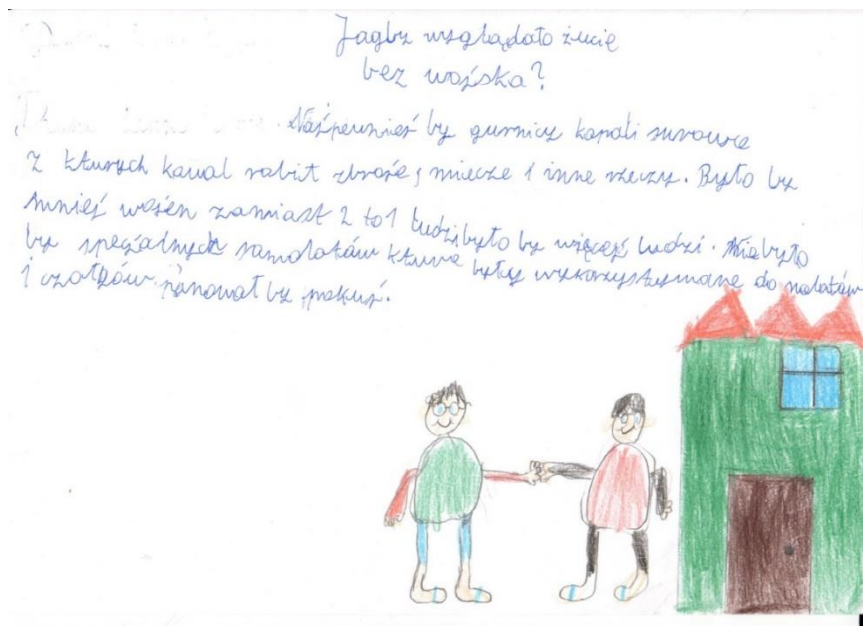 Jagby wzglądało żucię
bez wojska?
Najpewniej by gurnicy kopali surowce
z kturych kowal robit zbroje, miecze i inne rzeczy. Było by
mniej wojen zamiast 2 to 1 ludzi było by więcej ludzi. Niebyło
by specjalnych samolotów kture były wykorzystywane do nalotów
i czołgów. panował by pokuj.